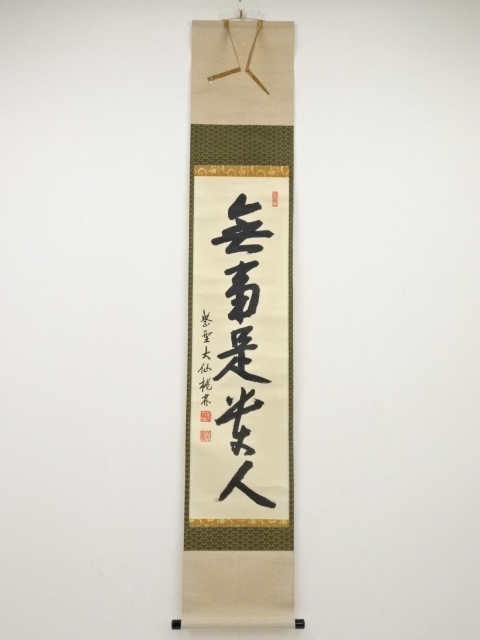 無事是貴人
紫野大仙